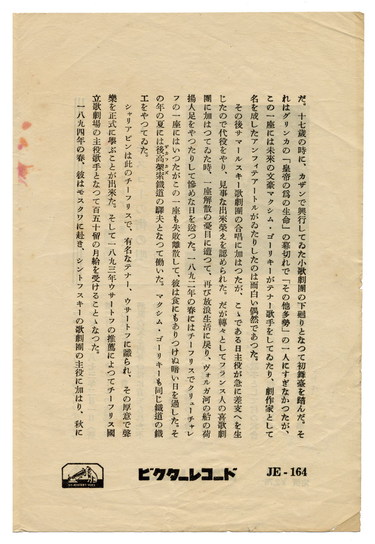 だ。十七歳の時に、カザンで興行してゐた小歌劇團の下廻りとなつて初舞臺を踏んだ。そ
れはグリンカの「皇帝の爲の生命」の幕切れで「その他多勢」の一人にすぎなかつたが、
この一座には未來の文豪マクシム・ゴーリキーがテナー歌手をしてゐたり、劇作家として
名を成したアンフィテアートルがゐたりしたのは面白い偶然であつた。
その後サマールスキー歌劇團の合唱に加はつたが、こゝである日主役が急に差支へを生
じたので代役をやり、見事な出來榮えを認められた。だが轉々としてフランス人の喜歌劇
團に加はつてゐた時、一座解散の憂目に遭つて、再び放浪生活に戻り、ヴォルガ河の船の荷
揚人足をやつたりして慘めな日を送つた。一八九二年の春にはチーフリスでクリューチャレ
フの一座にはいつたがこの一座も失敗離散して、彼は食にもありつけぬ暗い日を過した。そ
の年の夏には後高架索鐵道の驛夫となつて働いた。マクシム・ゴーリキーも同じ鐵道の鐵
工をやつてゐた。
シャリアピンは此のチーフリスで、有名なテナー、ウサートフに識られ、その厚意で聲
樂を正式に學ぶことが出來た。そして一八九三年ウサートフの推薦によつてチーフリス國
立歌劇場の主役歌手となつて百五十留の月給を受けることゝなつた。
一八九四年の春、彼はモスクワに赴き、シントフスキーの歌劇團の主役に加はり、秋に
JE-164
ビクターレコード